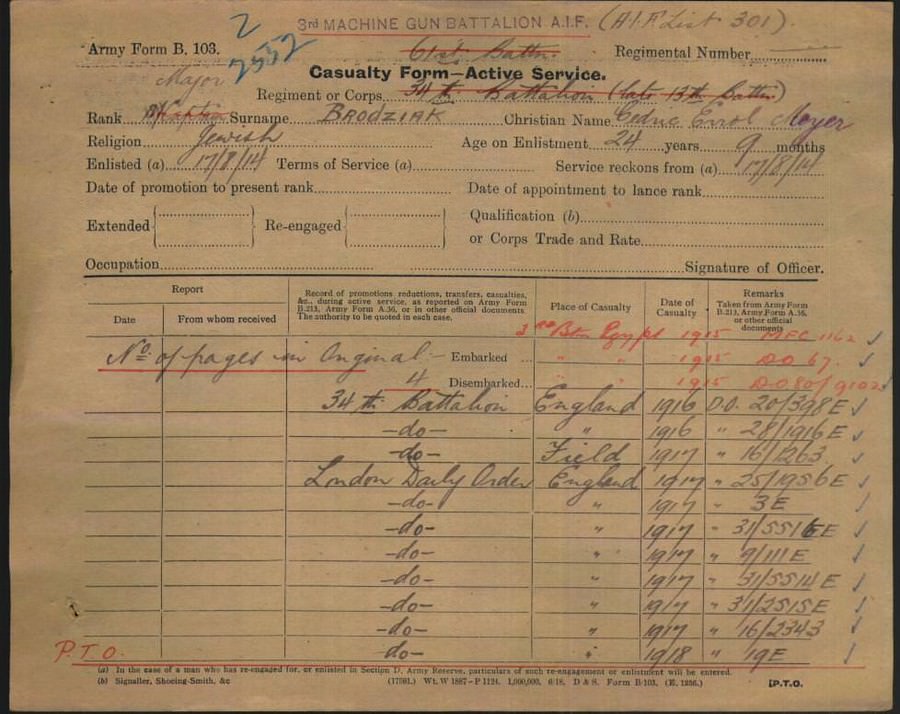 3rd MACHINE GUN BATTALION A.I.F. (A.I.F. List 301).
2
2552
Army Form B. 103.
61st Battn.
Regimental Number
Major
Casualty Form—Active Service.
Regiment or Corps 34th Battalion (late 13th Battn)
Rank Captain Surname BRODZIAK Christian Name Cedric Errol Meyer
Religion Jewish Age on Enlistment 24 years 9 months
Enlisted (a) 17/8/14 Terms of Service (a) Service reckons from (a) 17/8/14
Date of promotion to present rank Date of appointment to lance rank
Extended Re-engaged Qualification (b)
or Corps Trade and Rate
Occupation Signature of Officer.
Report
Date From whom received
Record of promotions reductions, transfers, casualties, &c., during active service, as reported on Army Form B.213, Army Form A.36, or in other official documents. The authority to be quoted in each case.
Place of Casualty
Date of Casualty
Remarks
Taken from Army Form B.213, Army Form A.36, or other official documents
Egypt 1915 MFC 1162 ✓
No. of pages in Original — Embarked ... " " 1915 D.O 67. ✓
4 Disembarked... " " 1915 D.O 80/9102 ✓
34th Battalion England 1916 D.O. 20/398E ✓
-do- " 1916 " 28/1916E ✓
-do- Field 1917 " 16/1263 ✓
London Daily Order England 1917 " 25/1956E ✓
-do- " 1917 " 3E ✓
-do- " 1917 " 31/5516E ✓
-do- " 1917 " 9/111E ✓
-do- " 1917 " 31/5514E ✓
-do- " 1917 " 31/2515E ✓
-do- " 1917 " 16/2343 ✓
P.T.O. -do- " 1918 " 19E ✓
(a) In the case of a man who has re-engaged for, or enlisted in Section D. Army Reserve, particulars of such re-engagement or enlistment will be entered.
(b) Signaller, Shoeing-Smith, &c (17091.) Wt. W 1887—P 1124. 1,000,000. 6/18. D & S. Form B/103. (E. 1256.) [P.T.O.